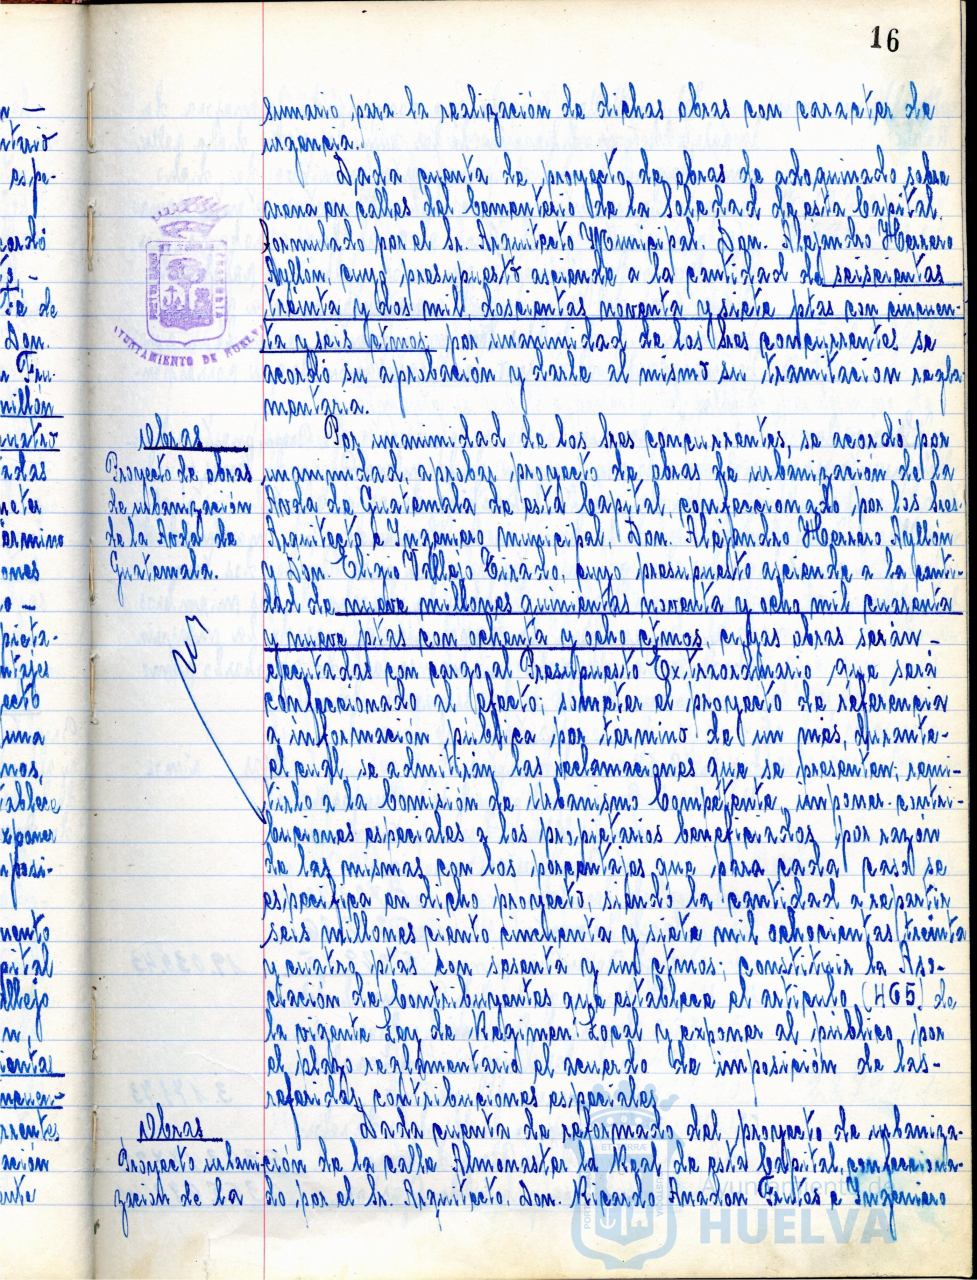 16
sumario para la realización de dichas obras con caracter de
urgencia.
Dada cuenta de proyecto de obras de adoquinado sobre
arena en calles del Cementerio de la Soledad de esta Capital,
formulado por el Sr. Arquitecto Municipal, Don. Alejandro Herrero
Ayllón, cuyo presupuesto asciende a la cantidad de seiscientas
treinta y dos mil, doscientas noventa y siete ptas con cincuen-
ta y seis ctmos; por unanimidad de los Sres concurrentes se
acordó su aprobación y darle al mismo su tramitacion regla-
mentaria.
AYUNTAMIENTO DE HUELVA
Obras
Proyecto de obras
de urbanización
de la Avda de
Guatemala.
Por unanimidad de los Sres concurrentes, se acordo por
unanimidad, aprobar proyecto de obras de urbanización de la
Avda de Guatemala de esta Capital, confeccionado por los Sres.
Arquitecto e Ingeniero municipal, Don. Alejandro Herrero Ayllón
y Don. Eligio Vallejo Tirado, cuyo presupuesto asciende a la canti-
dad de nueve millones quinientas noventa y ocho mil cuarenta
y nueve ptas con ochenta y ocho ctmos, cuyas obras serán -
ejecutadas con cargo al Presupuesto Extraordinario que será
confeccionado al efecto; someter el proyecto de referencia
a información pública por termino de un mes, durante-
el cual, se admitirán las reclamaciones que se presenten; remi-
tirlo a la Comisión de Urbanismo Competente, imponer contri-
buciones especiales a los propietarios beneficiados por razón
de las mismas con los porcentajes que para cada caso se
especifica en dicho proyecto, siendo la cantidad a repartir
seis millones ciento cincuenta y siete mil ochocientas treinta
y cuatro ptas con sesenta y un ctmos; constituir la Aso-
ciación de Contribuyentes que establece el articulo (465) de
la vigente Ley de Regimen Local y exponer al público, por
el plazo reglamentario el acuerdo de imposición de las-
referidas contribuciones especiales
Obras
Proyecto urbani-
zación de la
Dada cuenta de reformado del proyecto de urbaniza-
ción de la calle Almonaster la Real de esta Capital, confecciona-
do por el Sr. Arquitecto. Don. Ricardo Anadon Frutos e Ingeniero
Ayuntamiento de
HUELVA